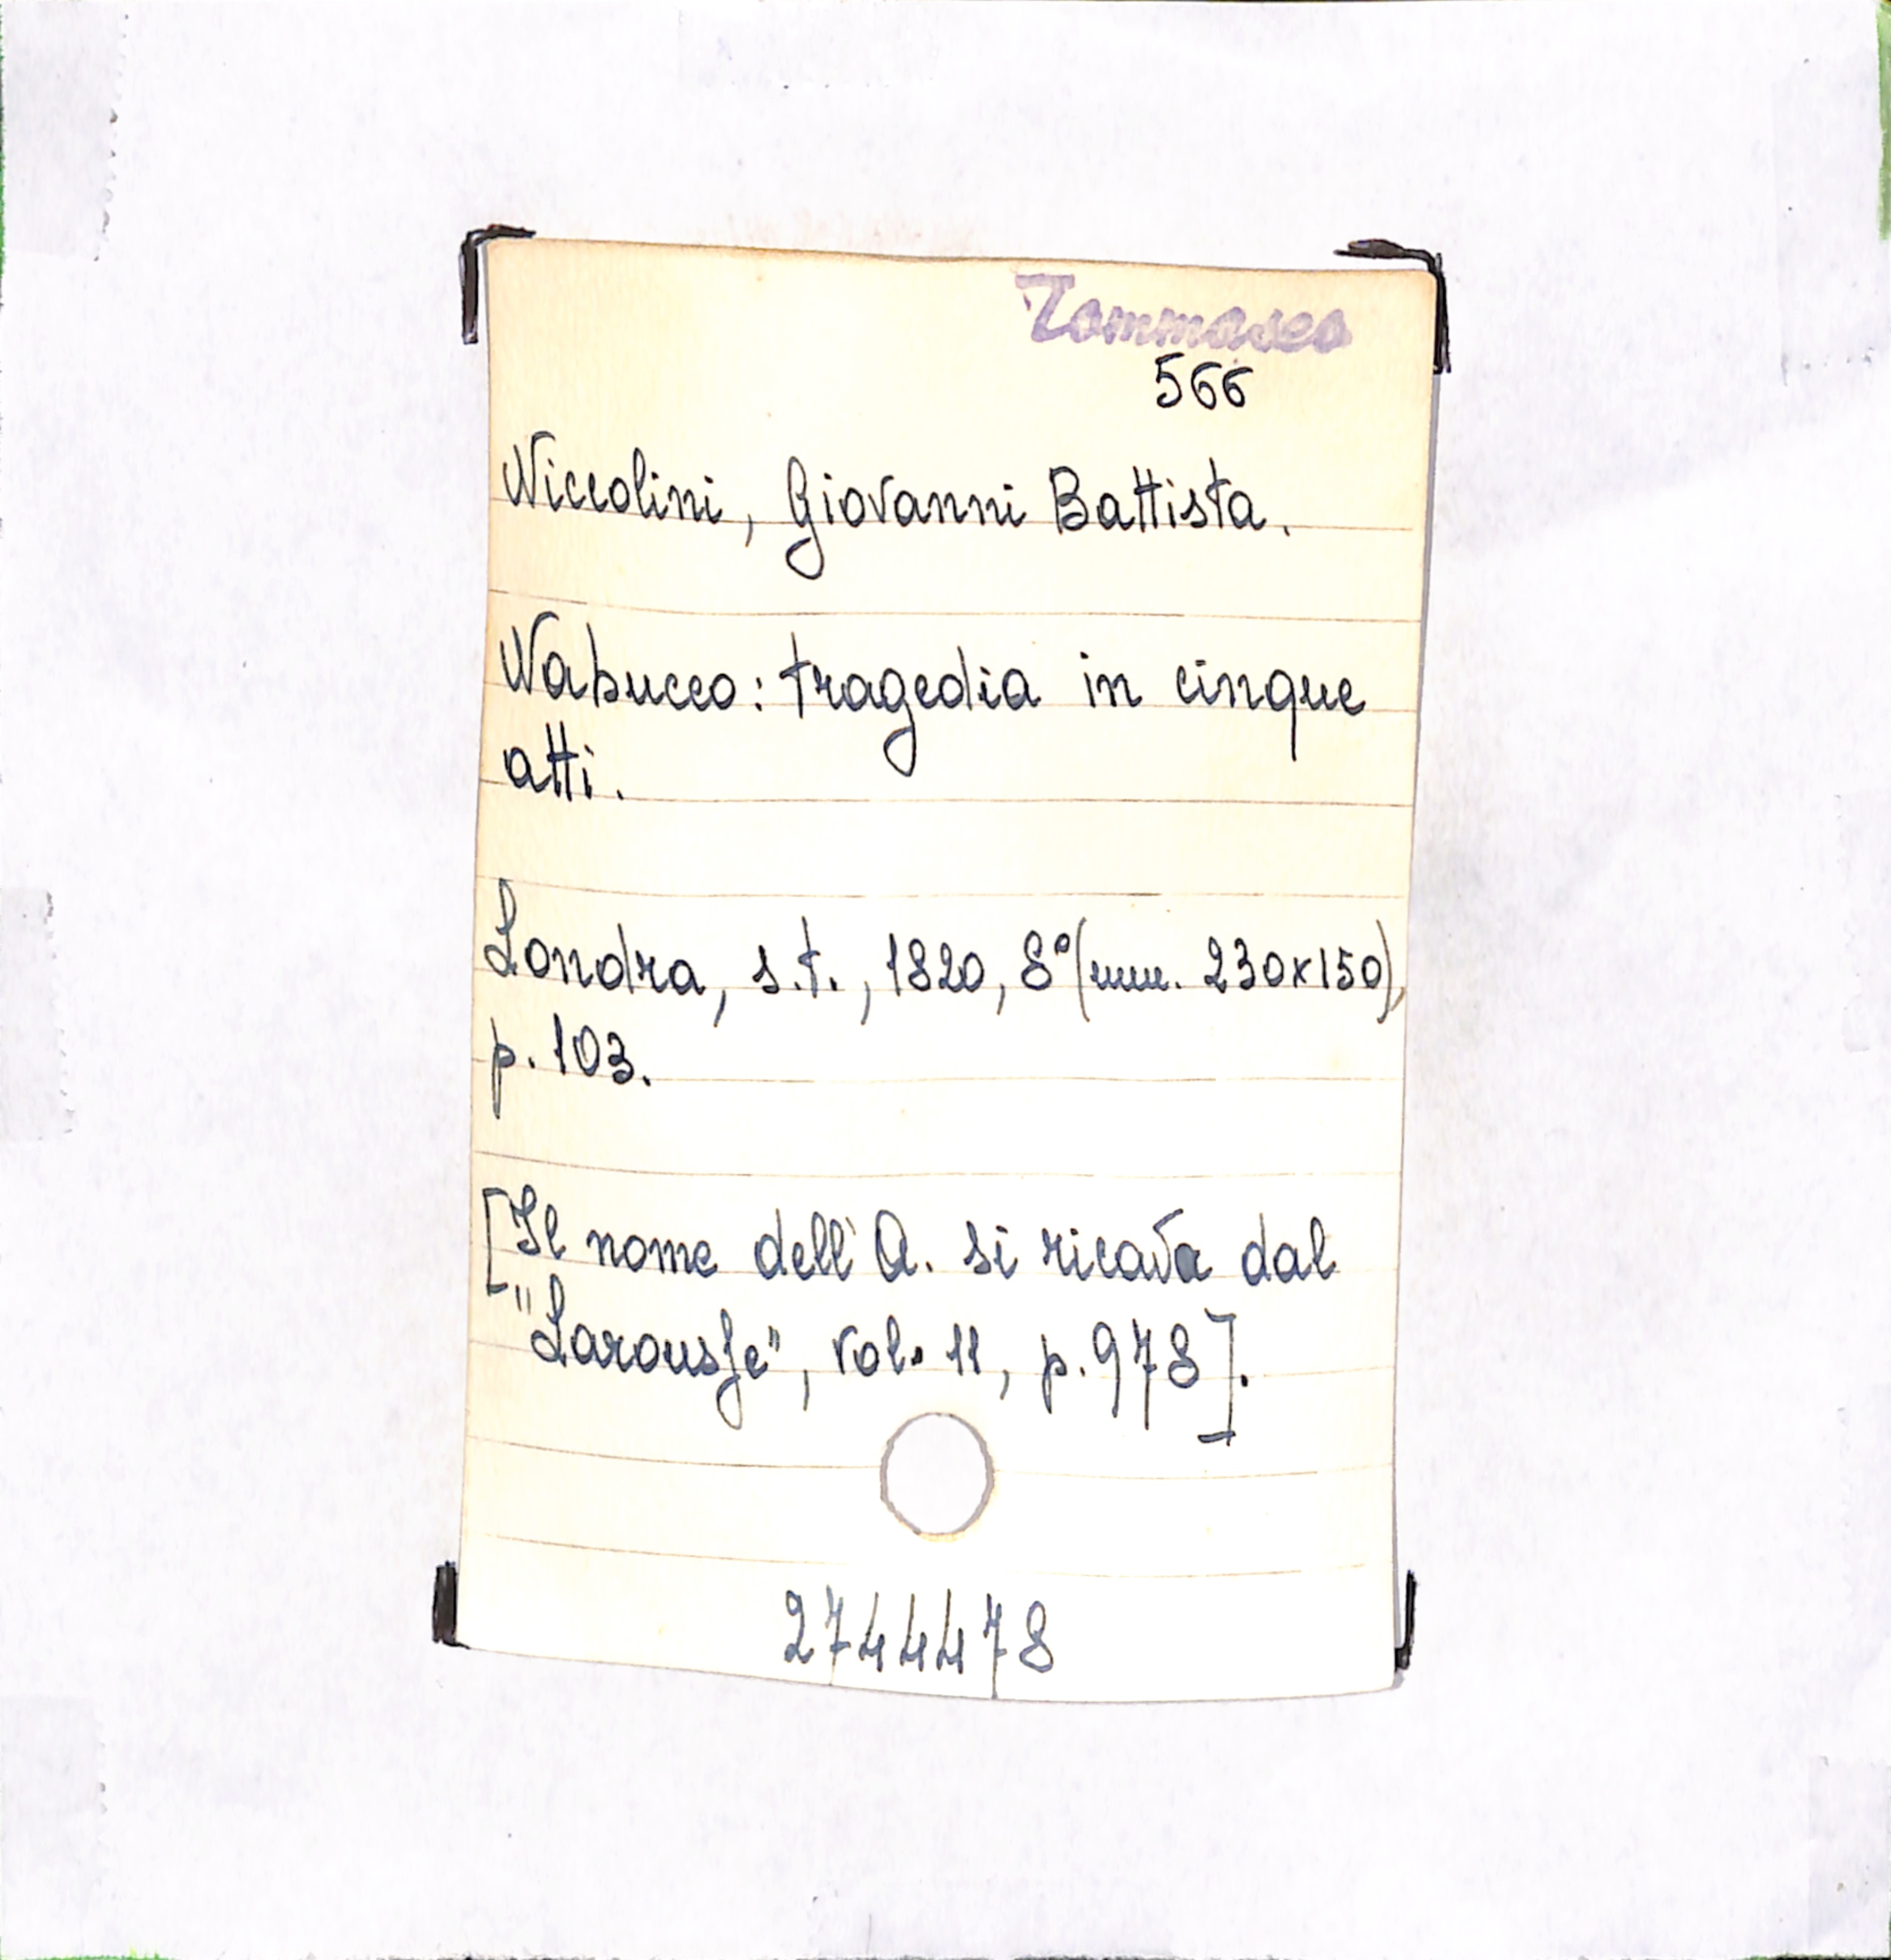 Tommaseo
566
Niccolini, Giovanni Battista.
Nabucco: tragedia in cinque
atti.
Londra, s.t., 1820, 8°(mm. 230x150),
p. 103.
[Il nome dell'A. si ricava dal
"Larousse", vol. 11, p. 978].
2744478